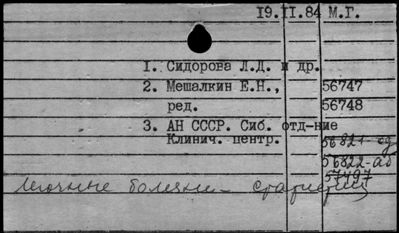 19.11.84 М.Г.
1. Сидорова Л.Д. и др.
2. Мешалкин Е.Н., 56747
ред. 56748
3. АН СССР. Сиб. отд-ние
Клинич. центр. 56821-
56822-аб
57497
Легочные болезни -